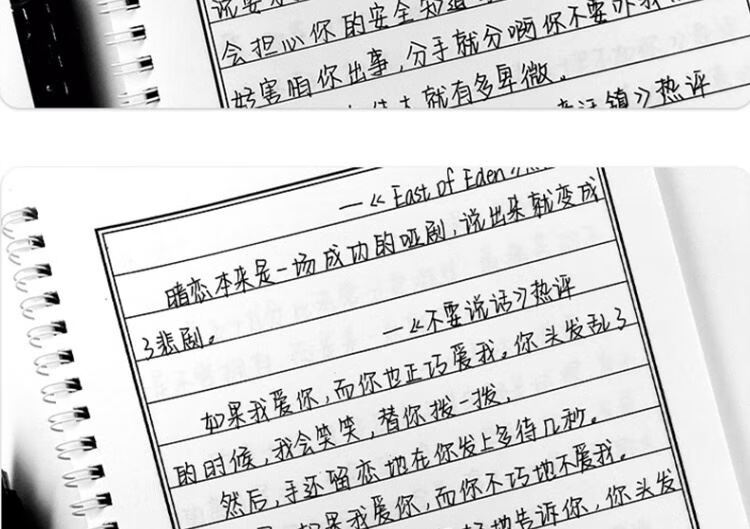 会担心你的安全知道
会担心你出事,分手就分啊你不要吓我
好害怕你出事
就有多卑微。
》热评
—《East of Eden》
暗恋本来是一场成功的哑剧,说出来就变成
了悲剧。 —《不要说话》热评
如果我爱你,而你也正巧爱我。你头发乱了
的时候,我会笑笑,替你拨一拨,
然后,手还留恋地在你发上多待几秒。
如果我爱你,而你不巧地不爱我。
地告诉你,你头发